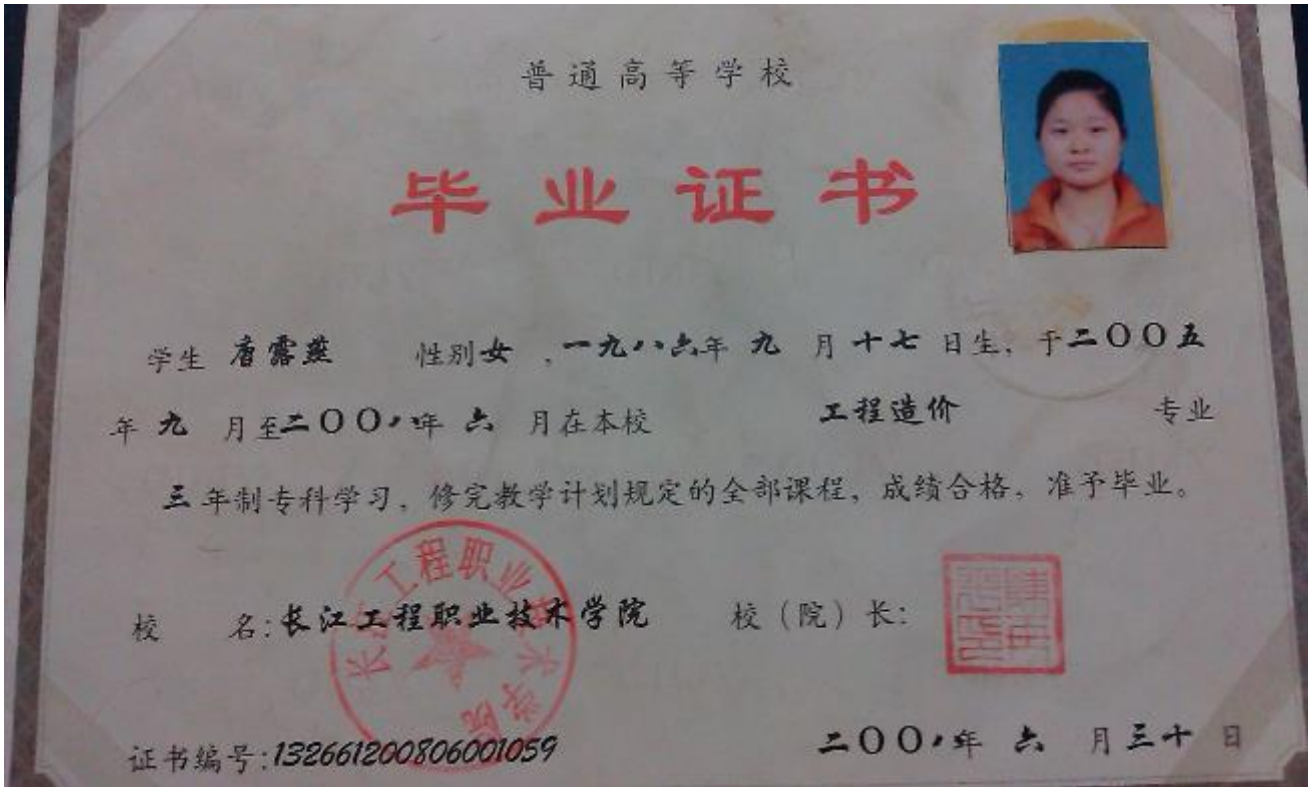 普通高等学校
毕业证书
学生 唐露燕 性别女,一九八六年 九 月 十七 日生,于二〇〇五
年 九 月至二〇〇八年 六 月在本校 工程造价 专业
三 年制专科学习,修完教学计划规定的全部课程,成绩合格,准予毕业。
校 名:长江工程职业技术学院 校(院)长:
长江工程职业技术学院
证书编号:132661200806001059 二〇〇八年 六 月三十日